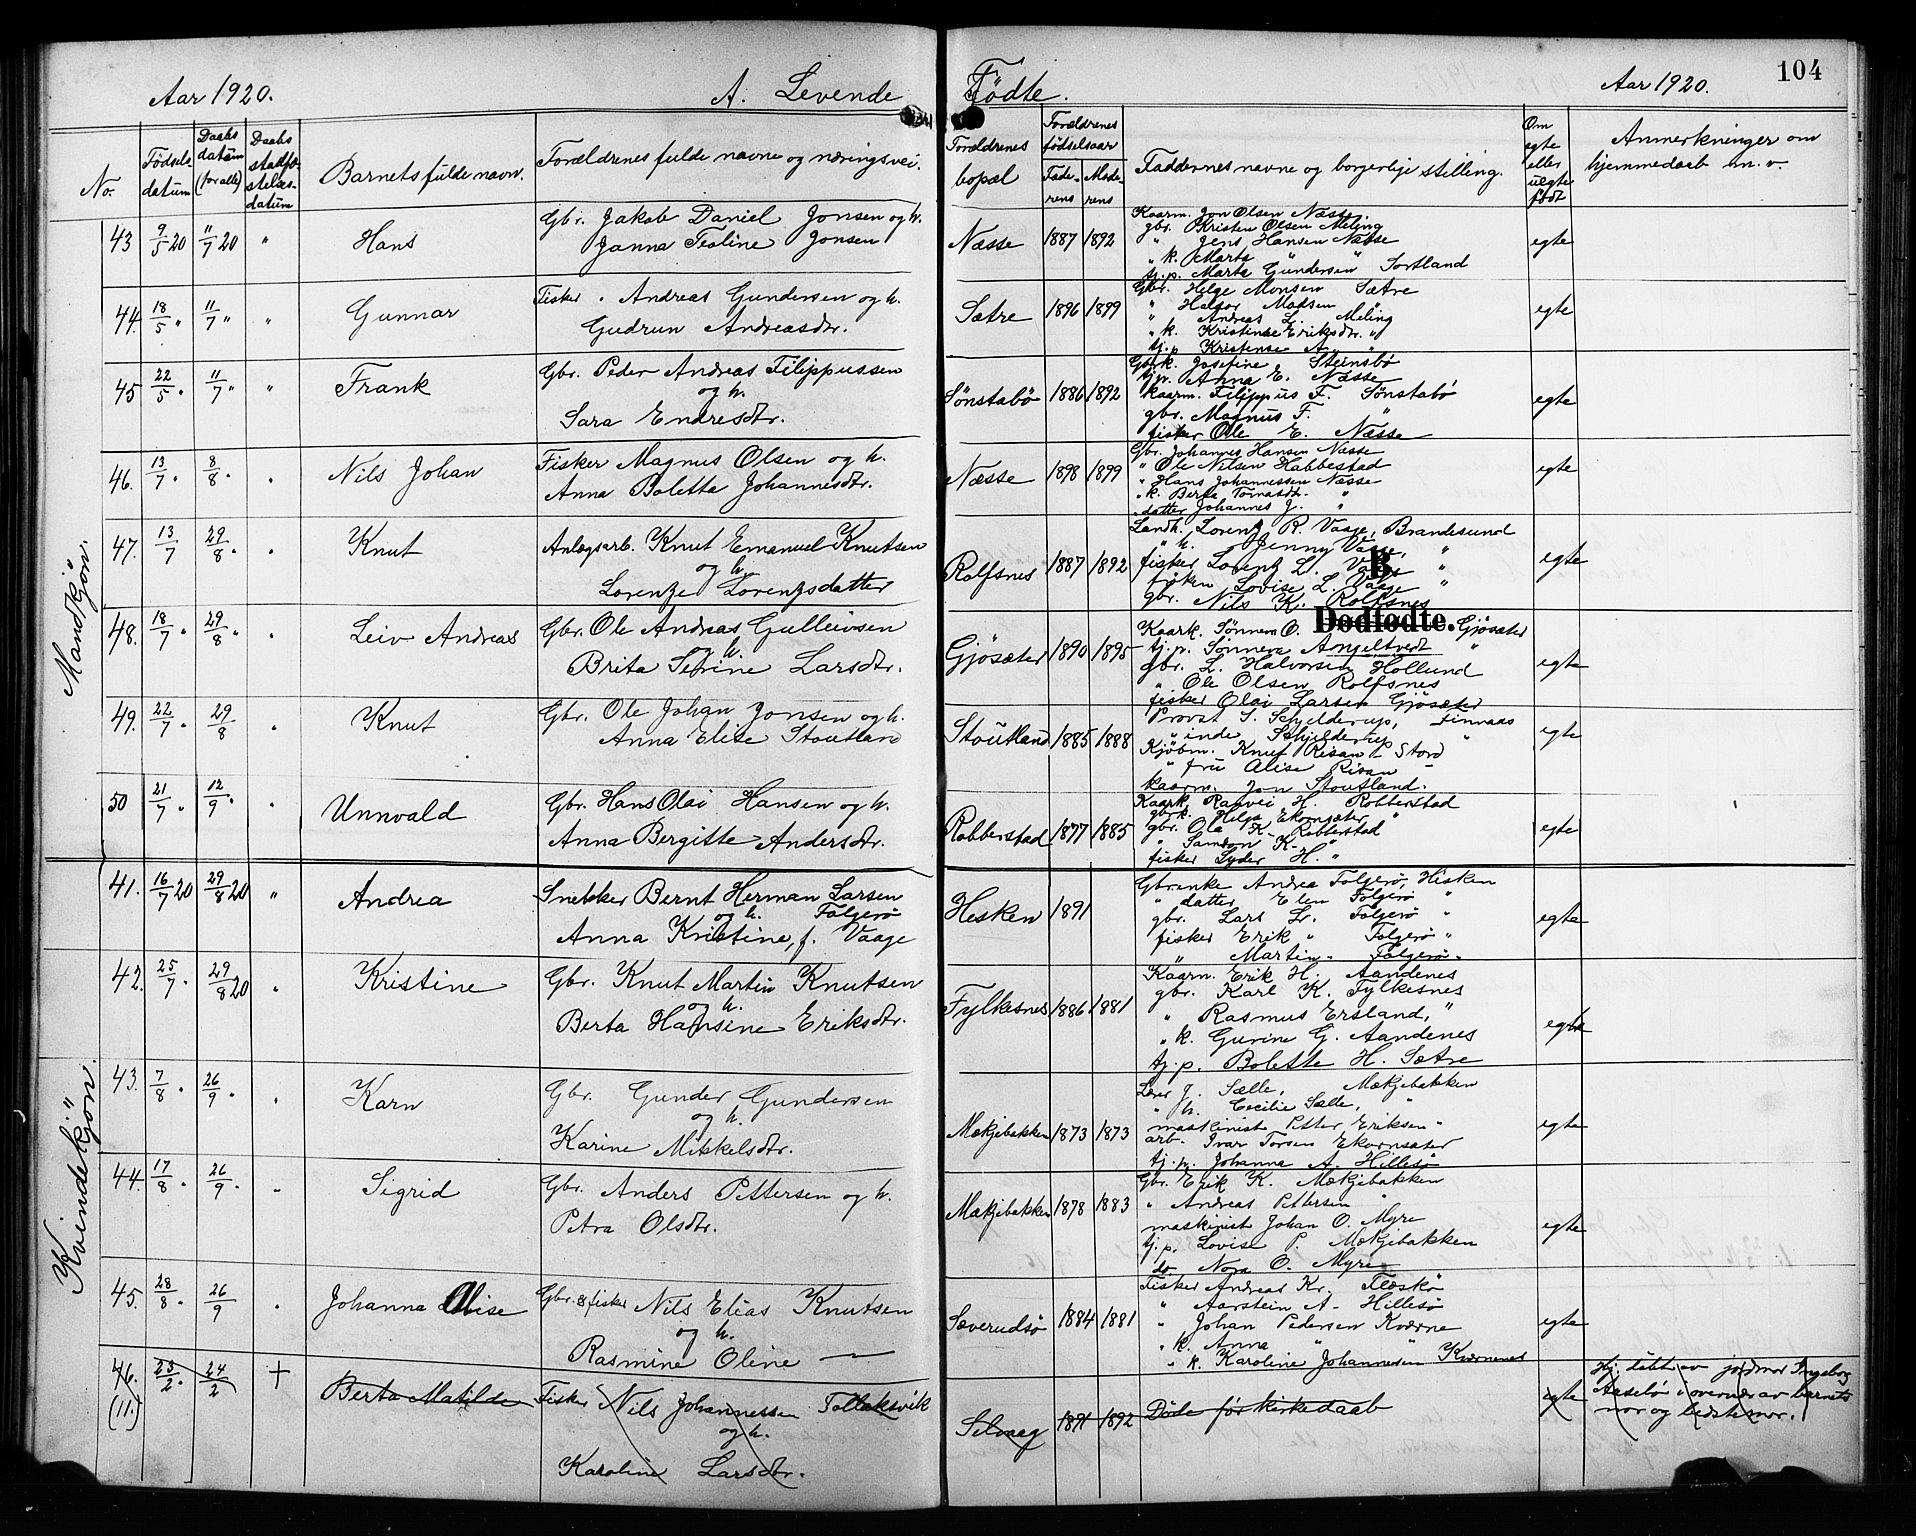 Aar 1920. A. Levende Fødte. Aar 1920. 104
No. Fødselsdatum Daabsdatum (for alle) Daabs stadfæstelsesdatum Barnets fulde navn. Forældrenes fulde navne og næringsvei. Forældrenes bopæl Forældrenes fødselsaar Faderens Moderens Faddernes navne og borgerlije stilling. Om egte eller uegte født Anmerkninger om hjemmedaab m. v.
Mandkjøn.
43 9/5 20 11/7 20 " Hans
Gbr. Jakob Daniel Jonsen og h.
Janna Teoline Jonsen
Næsse 1887 1892
Kaarm. Jon Olsen Næsse
gbr. Kristen Olsen Meling
" Jens Hansen Næsse
" k. Marta " "
tj.p. Marta Gundersen Sortland
egte
44. 18/5 " 11/7 " " Gunnar
Fisker Andreas Gundersen og h.
Gudrun Andreasdtr.
Sætre 1896 1899
Gbr. Helge Monsen Sætre
" Halvor Madsen "
" Andreas L. Meling
" k. Kristine Eriksdtr. "
tj.p. Kristense A. "
egte
45 22/5 " 11/7 " " Frank
Gbr. Peder Andreas Filippussen
og h.
Sara Endresdtr.
Sønstabø 1886 1892
Gbrk. Josefine Steinsbø
tj.p. Anna E. Næsse
kaarm. Filippus F. Sønstabø
gbr. Magnus F. "
fisker Ole E. Næsse
egte
46. 13/7 " 8/8 " " Nils Johan
Fisker Magnus Olsen og h.
Anna Boletta Johannesdtr.
Næsse 1898 1899
Gbr. Johannes Hansen Næsse
" Ole Nilsen Habbestad
" Hans Johannessen Næsse
" k. Berta Tomasdtr. "
datter Johannes J. "
egte
47. 13/7 29/8 " " Knut
Anlegsarb. Knut Emanuel Knutsen
og h.
Lorenze Lorenzsdatter
Rolfsnes 1887 1892
Landh. Lorenz R. Vaage, Brandesund
" h. Jenny Vaage, "
fisker Lorenz L. Vaage "
frøken Lovise L. Vaage "
gbr. Nils K. Rolfsnes
egte
B.
Dødfødte.
48. 18/7 " 29/8 " " Leiv Andreas
Gbr. Ole Andreas Gulleivsen
og h.
Brita Serine Larsdtr.
Gjøsæter 1890 1895
Kaark. Sønneva O. Gjøsæter
tj.p. Sønneva Angeltvedt "
gbr. L. Halvorsen Hollund
" Ole Olsen Rolfsnes
fisker Olai Larsen Gjøsæter
egte
49. 22/7 " 29/8 " Knut
Gbr. Ole Johan Jonsen og h.
Anna Elise Stoutland
Stoutland 1885 1888
Provst S. Schjelderup, Finnaas
" inde Schjelderup "
Kjøbm. Knut Risan Stord
" fru Alise Risan "
kaarm. Jon Stoutland.
egte
50 21/7 " 12/9 " " Unnvald
Gbr. Hans Olai Hansen og h.
Anna Bergitte Andersdtr.
Robberstad 1877 1885
Kaark. Ranvei H. Robberstad
gbrk. Helga Ekornsæter "
gbr. Ola K. Robberstad
" Samson K. "
fisker Syder H. "
egte
Kvindekjøn.
41. 16/7 20 29/8 20 " Andrea
Snekker Bernt Herman Larsen
og h. Folgerø
Anna Kristine, f. Vaage
Hesken 1891
Gbr.enke Andrea Folgerø, Hisken
" datter Elen Folgerø "
gbr. Lars L. Folgerø "
fisker Erik " Folgerø "
" Martin " Folgerø "
egte
42. 25/7 29/8 20 " Kristine
Gbr. Knut Martin Knutsen
og h.
Berta Hansine Eriksdtr.
Fylkesnes 1886 1881
Kaarm. Erik H. Aandenes
gbr. Karl K. Fylkesnes
" Rasmus Ersland, "
" k. Gurine G. Aandenes
tj.p. Bolette H. Sætre
egte
43. 7/8 " 26/9 " " Karn
Gbr. Gunder Gundersen
og h.
Karine Mikkelsdtr.
Mækjebakken 1873 1873
Lærer J. Sælle, Mækjebakken
" h. Cecilie Sælle, "
maskinist Petter Eriksen "
arb. Ivar Torsen Ekornsæter
tj.p. Johanna A. Hillesø
egte
44. 17/8 " 26/9 " " Sigrid
Gbr. Anders Pettersen og h.
Petra Olsdtr.
Mækjebakken 1878 1883
Gbr. Erik K. Mækjebakken
" Andreas Pettersen "
maskinist Johan O. Myre
tj.p. Lovise P. Mækjebakken
do Nora O. Myre
egte
45. 28/8 " 26/9 " Johanna Alise
Gbr. & fisker Nils Elias Knutsen
og h.
Rasmine Oline —
Sæverudsø 1884 1881
Fisker Andreas Kr. Flæskø
" Aarstein A. Hillesø
" Johan Pedersen Kværne
" k. Anna " "
" k. Karoline Johannesen Kværnenes
egte
46. (11.) 23/2 " 24/2 + Berta Matilde
Fisker Nils Johannessen Tollaksvik
og h.
Karoline Larsdtr.
Selvaag 1891 1892
Døde før kirkedaab
egte
Hj. døbt av jordmor Ingeborg
Aasebø i overvær av barnets
mor og bedstemor.